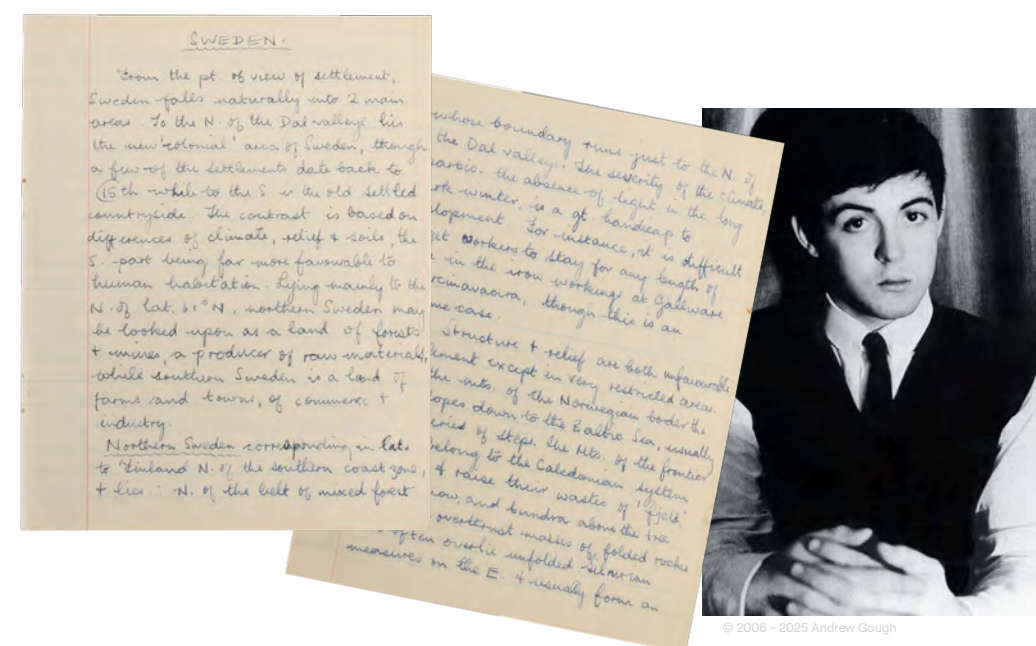 SWEDEN.
From the pt. of view of settlement,
Sweden falls naturally into 2 main
areas. To the N. of the Dal valleys lies
the new 'colonial' area of Sweden, though
a few of the settlements date back to
15th while to the S is the old settled
countryside. The contrast is based on
differences of climate, relief & soils, the
S. part being far more favourable to
human habitation. Lying mainly to the
N. of lat. 61°N, northern Sweden may
be looked upon as a land of forests
+ mines, a producer of raw materials,
while southern Sweden is a land of
farms and towns, of commerce +
industry.
Northern Sweden corresponding in lat.
to Finland N. of the southern coast zone,
+ lies ∴ N. of the belt of mixed forest
whose boundary runs just to the N. of
the Dal valleys. The severity of the climate,
the absence of light in the long
winter, is a gt. handicap to
For instance, it is difficult
workers to stay for any length of
in the iron workings at Gällivare
though this is an
case.
Structure + relief are both unfavourable
except in very restricted areas.
the mts. of the Norwegian border the
down to the Baltic Sea, usually
of steps. The Mts. of the frontier
belong to the Caledonian system
& raise their wastes of 'fjeld'
and tundra above the tree
overthrust masses of folded rocks
often overlie unfolded silurian
measures on the E. + usually form an
© 2006 – 2025 Andrew Gough